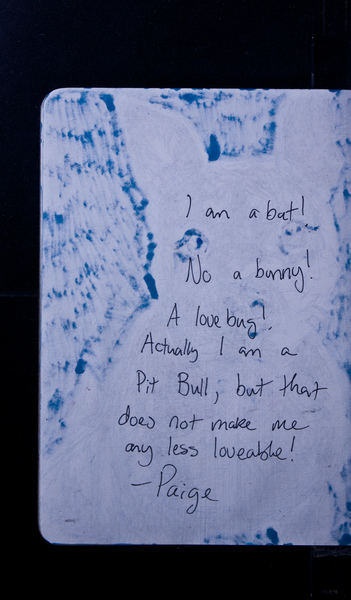 I am a bat!
No a bunny!
A love bug!
Actually I am a
Pit Bull, but that
does not make me
any less loveable!
-Paige